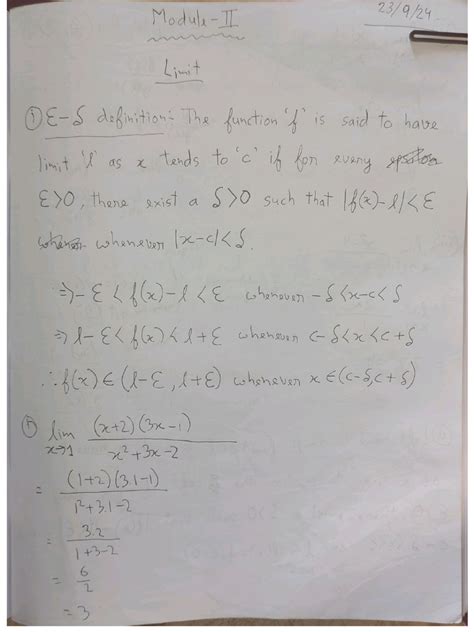 Module-II
23/9/24
Limit
① ε-δ definition:- The function 'f' is said to have
limit 'l' as x tends to 'c' if for every
ε>0, there exist a δ>0 such that |f(x)-l|<ε
whenever |x-c|<δ.
⇒ -ε < f(x)-l < ε whenever -δ<x-c<δ
⇒ l-ε < f(x) < l+ε whenever c-δ<x<c+δ
∴ f(x) ∈ (l-ε, l+ε) whenever x ∈ (c-δ, c+δ)
lim x→1 (x+2)(3x-1) / x²+3x-2
= (1+2)(3.1-1) / 1²+3.1-2
= 3.2 / 1+3-2
= 6/2
= 3